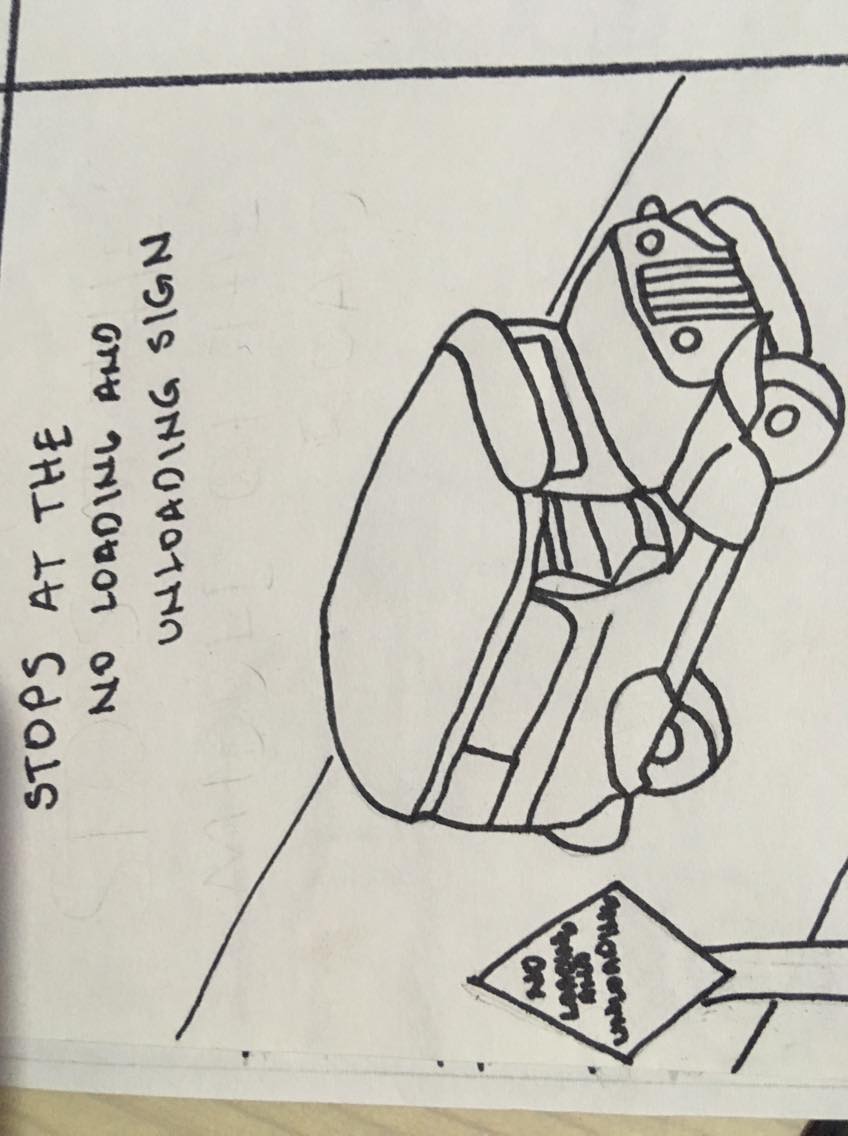 STOPS AT THE
NO LOADING AND
UNLOADING SIGN
NO
LOADING
AND
UNLOADING